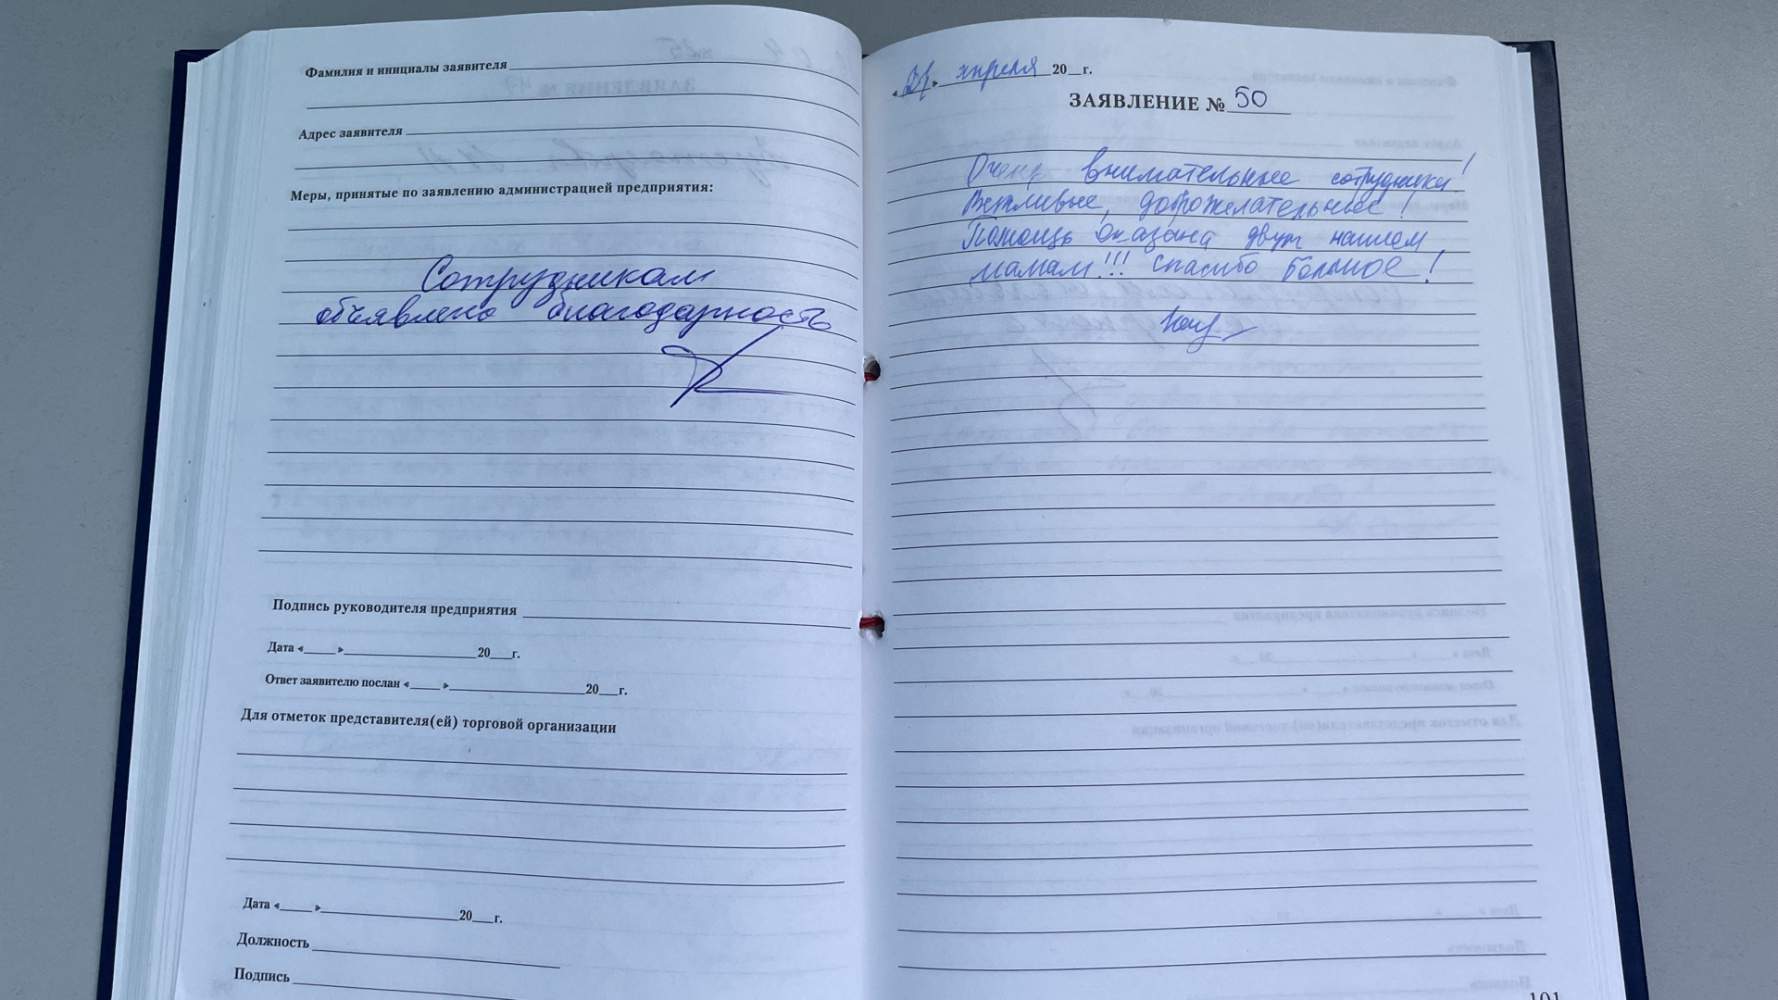 Фамилия и инициалы заявителя
Адрес заявителя
Меры, принятые по заявлению администрацией предприятия:
Сотрудникам
объявлена благодарность
Подпись руководителя предприятия
Дата «    »    20   г.
Ответ заявителю послан «    »    20   г.
Для отметок представителя(ей) торговой организации
Дата «    »    20   г.
Должность
Подпись
апреля 20  г.
ЗАЯВЛЕНИЕ № 50
Очень внимательные сотрудники!
Вежливые, доброжелательные!
Помощь оказана двум нашем
мамам!!! Спасибо большое!
101